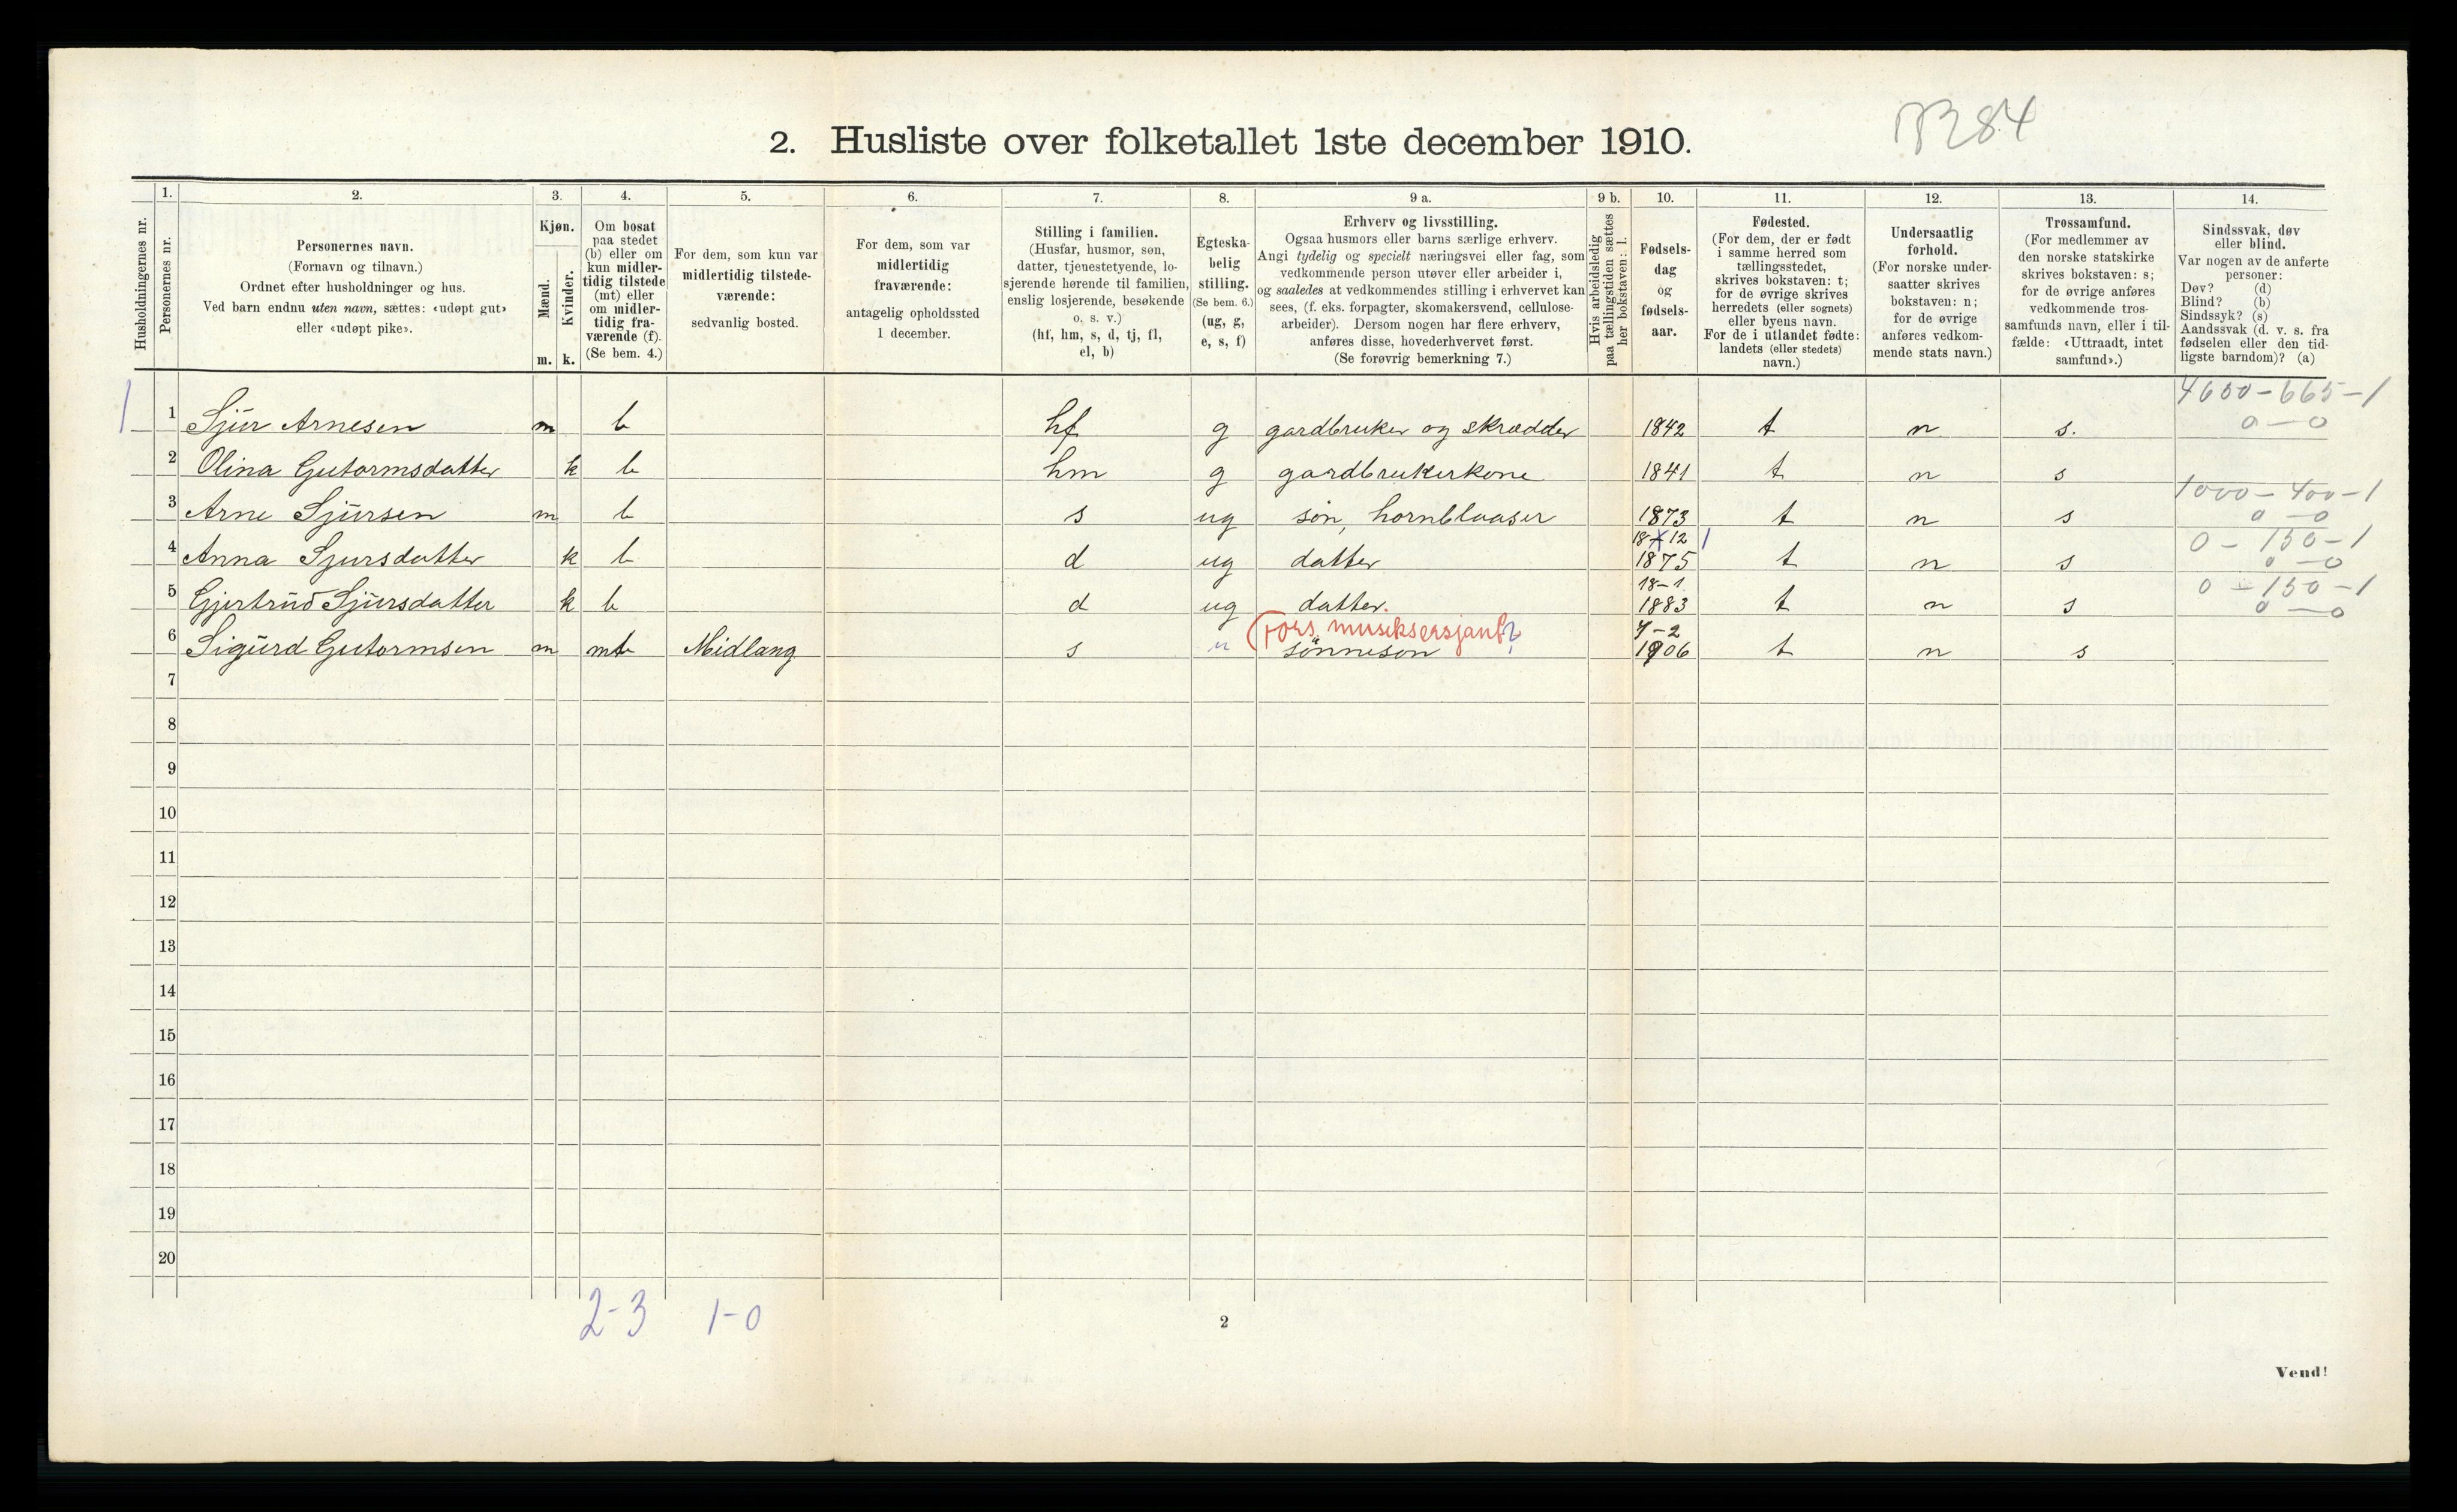 284
2. Husliste over folketallet 1ste december 1910.
1. 2. 3. 4. 5. 6. 7. 8. 9 a. 9 b. 10. 11. 12. 13. 14.
Husholdningernes nr.
Personernes nr.
Personernes navn.
(Fornavn og tilnavn.)
Ordnet efter husholdninger og hus.
Ved barn endnu uten navn, sættes: «udøpt gut»
eller «udøpt pike».
Kjøn.
Mænd.
Kvinder.
m. k.
Om bosat
paa stedet
(b) eller om
kun midler-
tidig tilstede
(mt) eller
om midler-
tidig fra-
værende (f).
(Se bem. 4.)
For dem, som kun var
midlertidig tilstede-
værende:
sedvanlig bosted.
For dem, som var
midlertidig
fraværende:
antagelig opholdssted
1 december.
Stilling i familien.
(Husfar, husmor, søn,
datter, tjenestetyende, lo-
sjerende hørende til familien,
enslig losjerende, besøkende
o. s. v.)
(hf, hm, s, d, tj, fl,
el, b)
Egteska-
belig
stilling.
(Se bem. 6.)
(ug, g,
e, s, f)
Erhverv og livsstilling.
Ogsaa husmors eller barns særlige erhverv.
Angi tydelig og specielt næringsvei eller fag, som
vedkommende person utøver eller arbeider i,
og saaledes at vedkommendes stilling i erhvervet kan
sees, (f. eks. forpagter, skomakersvend, cellulose-
arbeider). Dersom nogen har flere erhverv,
anføres disse, hovederhvervet først.
(Se forøvrig bemerkning 7.)
Hvis arbeidsledig
paa tællingstiden sættes
her bokstaven: l.
Fødsels-
dag
og
fødsels-
aar.
Fødested.
(For dem, der er født
i samme herred som
tællingsstedet,
skrives bokstaven: t;
for de øvrige skrives
herredets (eller sognets)
eller byens navn.
For de i utlandet fødte:
landets (eller stedets)
navn.)
Undersaatlig
forhold.
(For norske under-
saatter skrives
bokstaven: n;
for de øvrige
anføres vedkom-
mende stats navn.)
Trossamfund.
(For medlemmer av
den norske statskirke
skrives bokstaven: s;
for de øvrige anføres
vedkommende tros-
samfunds navn, eller i til-
fælde: «Uttraadt, intet
samfund».)
Sindssvak, døv
eller blind.
Var nogen av de anførte
personer:
Døv? (d)
Blind? (b)
Sindssyk? (s)
Aandssvak (d. v. s. fra
fødselen eller den tid-
ligste barndom)? (a)
4600-665-1
1 1 Sjur Arnesen m b hf g gardbruker og skrædder 1842 t n s. 0-0
2 Olina Gutormsdatter k b hm g gardbrukerkone 1841 t n s
1000-400-1
3 Arne Sjursen m b s ug søn, hornblaaser 1873 t n s 0-0
18-12 1 0-150-1
4 Anna Sjursdatter k b d ug datter 1875 t n s 0-0
18-1 0-150-1
5 Gjertrud Sjursdatter k b d ug datter. 1883 t n s 0-0
(Fors. musiksersjant? 4-2
6 Sigurd Gutormsen m mt Midlang s u sønneson 1906 t n s
7
8
9
10
11
12
13
14
15
16
17
18
19
20
2-3 1-0
2
Vend!